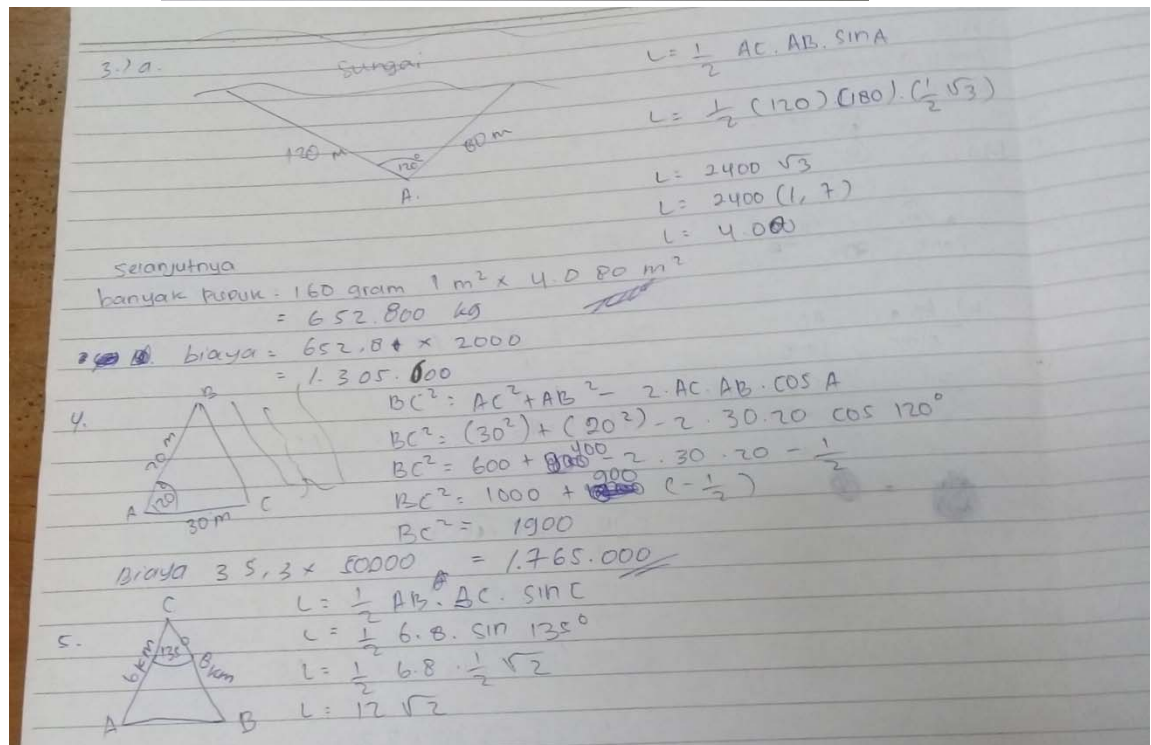 3.) a.
Sungai
120 m
80 m
120°
A.
L = 1/2 AC. AB. sin A
L = 1/2 (120) (180). (1/2 √3)
L = 2400 √3
L = 2400 (1, 7)
L = 4.080
selanjutnya
banyak pupuk = 160 gram 1 m² × 4.080 m²
= 652.800 kg
biaya = 652,8 × 2000
= 1.305.600
4.
B
20 m
120
A
C
30 m
BC² = AC² + AB² - 2. AC. AB. COS A
BC² = (30²) + (20²) - 2. 30. 20 cos 120°
BC² = 600 + 400 - 2. 30. 20 - 1/2
BC² = 1000 + 900 (- 1/2)
BC² = 1900
Biaya 35,3 × 50000 = 1.765.000
5.
C
6 km
135°
8 km
A
B
L = 1/2 AB. BC. sin C
L = 1/2 6. 8. sin 135°
L = 1/2 6. 8. 1/2 √2
L = 12 √2